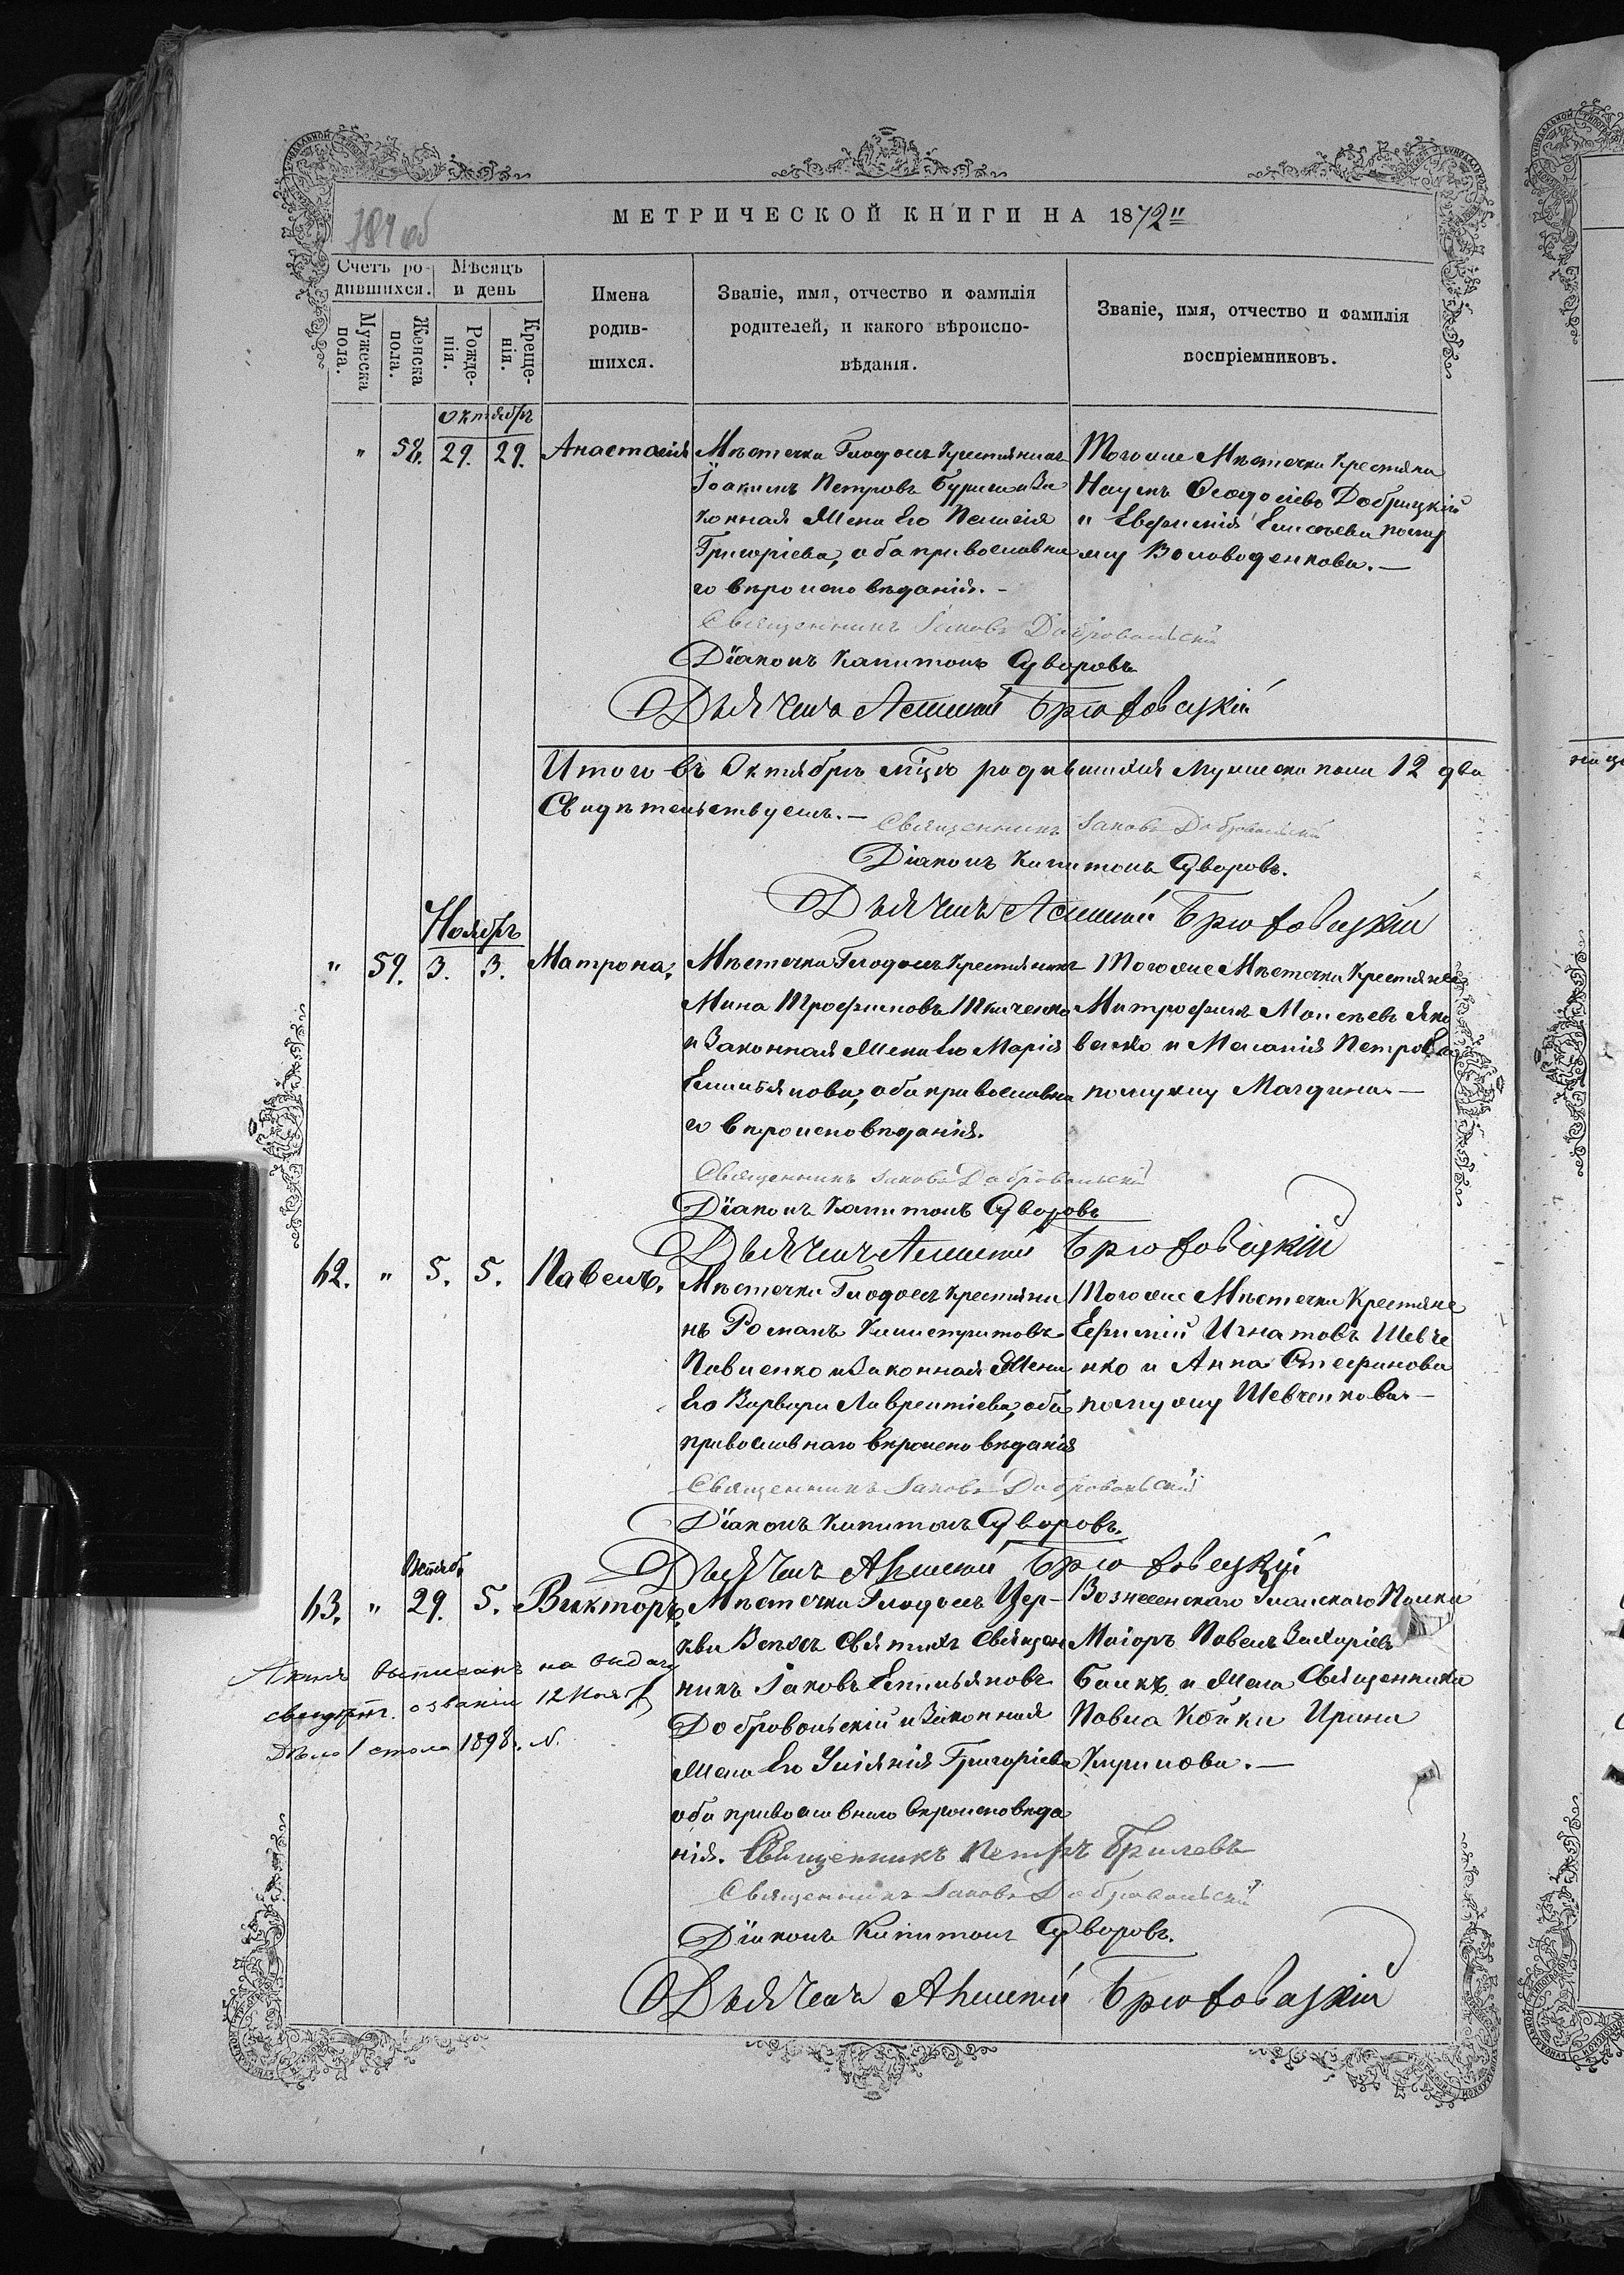 МЕТРИЧЕСКОЙ КНИГИ НА 1872
Счетъ ро-
дившихся.
Мѣсяцъ
и день
Мужеска
пола.
Женска
пола.
Рожде-
нія.
Креще-
нія.
Имена
родив-
шихся.
Званіе, имя, отчество и фамилія
родителей, и какого вѣроиспо-
вѣданія.
Званіе, имя, отчество и фамилія
воспріемниковъ.
Октябрь
" 58. 29. 29. Анастасія
Мѣстечка Глодосъ крестьянинъ
Іоакимъ Петровъ и За
конная Жена Его Пелагія
Григоріева, оба православна
го вѣроисповѣданія. -
Тогоже Мѣстечка Крестьяне
Наумъ Ѳеодосіевъ Добрицкій
и Евфимія Елисѣева помуж
жу Воловоденкова. —
Священникъ Іаковъ Добровольскій
Діаконъ Капитонъ Суворовъ
Дьячекъ Алексѣй Брюховецкій
Итого въ Октябрѣ мѣцѣ родившихся Мужеска пола 12 два
Свидѣтельствуемъ. —
Священникъ Іаковъ Добровольскій
Діаконъ Капитонъ Суворовъ.
Дьячекъ Алексѣй Брюховецкій
Ноябрь
" 59. 3. 3. Матрона.
Мѣстечка Глодосъ Крестьянинъ
Мина Трофимовъ Ткаченко
и Законная Жена Его Марія
Емильянова, оба православна
го вѣроисповѣданія.
Тогоже Мѣстечка Крестьяне
Митрофанъ Моисѣевъ Яко
венко и Меланія Петрова
помужу —
Священникъ Іаковъ Добровольскій
Діаконъ Капитонъ Суворовъ
Дьячекъ Алексѣй Брюховецкій
62. " 5. 5. Павелъ.
Мѣстечка Глодосъ Крестьяни
нъ Романъ Каллистратовъ
Павленко и Законная Жена
Его Варвара Лаврентіева, оба
православнаго вѣроисповѣданія
Тогоже Мѣстечка Крестьяне
Ефимій Игнатовъ Шевче
нко и Анна Стефанова
помужу Шевченкова —
Священникъ Іаковъ Добровольскій
Діаконъ Капитонъ Суворовъ.
Дьячекъ Алексѣй Брюховецкій
Октяб.
63. " 29. 5. Викторъ.
Мѣстечка Глодосъ Цер-
кви Всѣхъ Святыхъ Священ
никъ Іаковъ Емильяновъ
Добровольскій и Законная
Жена Его Уліянія Григоріева
оба православнаго вѣроисповѣда
нія.
Вознесенскаго Уланскаго Полка
Маіоръ Павелъ Захаріевъ
и Жена Священника
Павла Ирина
Кирилова. —
на выдачу
свидѣт. о званіи 12 Нояб
Дѣло 1 стола 1898 г. №.
Священникъ Петръ
Священникъ Іаковъ Добровольскій
Діаконъ Капитонъ Суворовъ.
Дьячекъ Алексѣй Брюховецкій